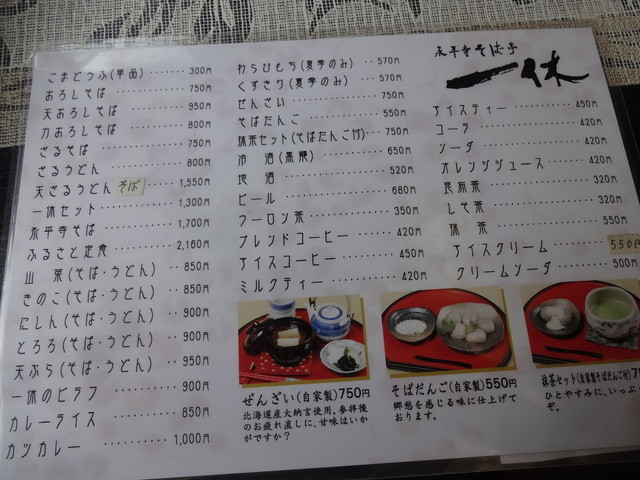 ごまどうふ(単品)‥‥‥300円
おろしそば‥‥‥‥750円
天おろしそば‥‥‥950円
力おろしそば‥‥‥800円
ざるそば‥‥‥‥‥750円
ざるうどん‥‥‥‥800円
天ざるうどん そば ‥‥1,550円
一休セット‥‥‥‥1,300円
永平寺そば‥‥‥‥1,700円
ふるさと定食‥‥‥2,160円
山 菜(そば・うどん)‥850円
きのこ(そば・うどん)‥850円
にしん(そば・うどん)‥900円
とろろ(そば・うどん)‥900円
天ぷら(そば・うどん)‥950円
一休のピラフ‥‥‥900円
カレーライス‥‥‥850円
カツカレー‥‥‥‥1,000円
わらびもち(夏季のみ)‥570円
くずきり(夏季のみ)‥‥570円
ぜんざい‥‥‥‥‥750円
そばだんご‥‥‥‥550円
抹茶セット(そばだんご付)‥750円
冷 酒(黒龍)‥‥‥650円
地 酒‥‥‥‥‥‥520円
ビール‥‥‥‥‥‥680円
ウーロン茶‥‥‥‥350円
ブレンドコーヒー‥‥420円
アイスコーヒー‥‥‥450円
ミルクティー‥‥‥‥420円
永平寺そば亭
一休
アイスティー‥‥‥‥450円
コーラ‥‥‥‥‥‥420円
ソーダ‥‥‥‥‥‥420円
オレンジジュース‥‥420円
‥‥‥‥‥‥320円
しそ茶‥‥‥‥‥‥320円
抹 茶‥‥‥‥‥‥550円
アイスクリーム‥‥‥550円
クリームソーダ‥‥‥500円
ぜんざい(自家製)750円
北海道産大納言使用。参拝後
のお疲れ直しに、甘味はいか
がですか?
そばだんご(自家製)550円
郷愁を感じる味に仕上げて
おります。
抹茶セット(自家製そばだんご付)7
ひとやすみに、いっぷ
ぞ。